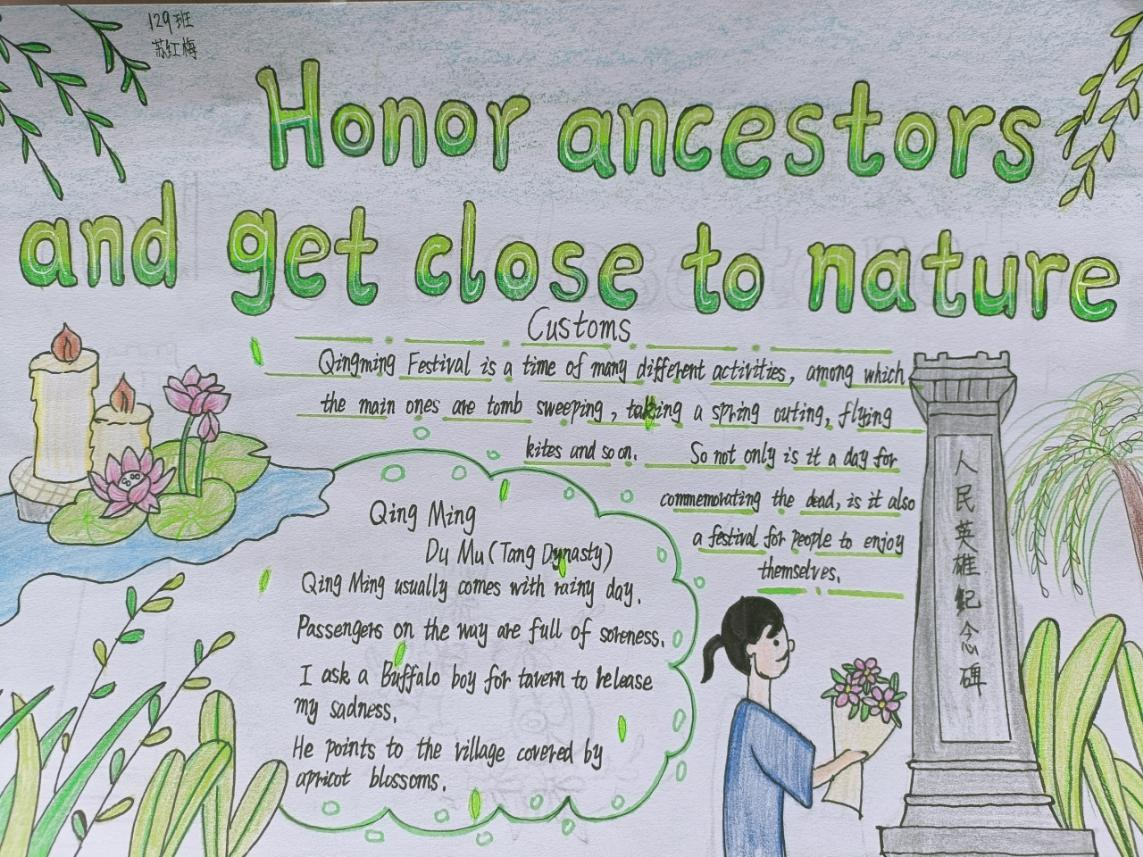 129班
苏红梅
Honor ancestors
and get close to nature
Customs
Qingming Festival is a time of many different activities, among which
the main ones are tomb sweeping, taking a spring outing, flying
kites and so on. So not only is it a day for
commemorating the dead, is it also
a festival for people to enjoy
themselves.
Qing Ming
Du Mu (Tang Dynasty)
Qing Ming usually comes with rainy day.
Passengers on the way are full of soreness.
I ask a Buffalo boy for tavern to release
my sadness.
He points to the village covered by
apricot blossoms.
人民英雄纪念碑